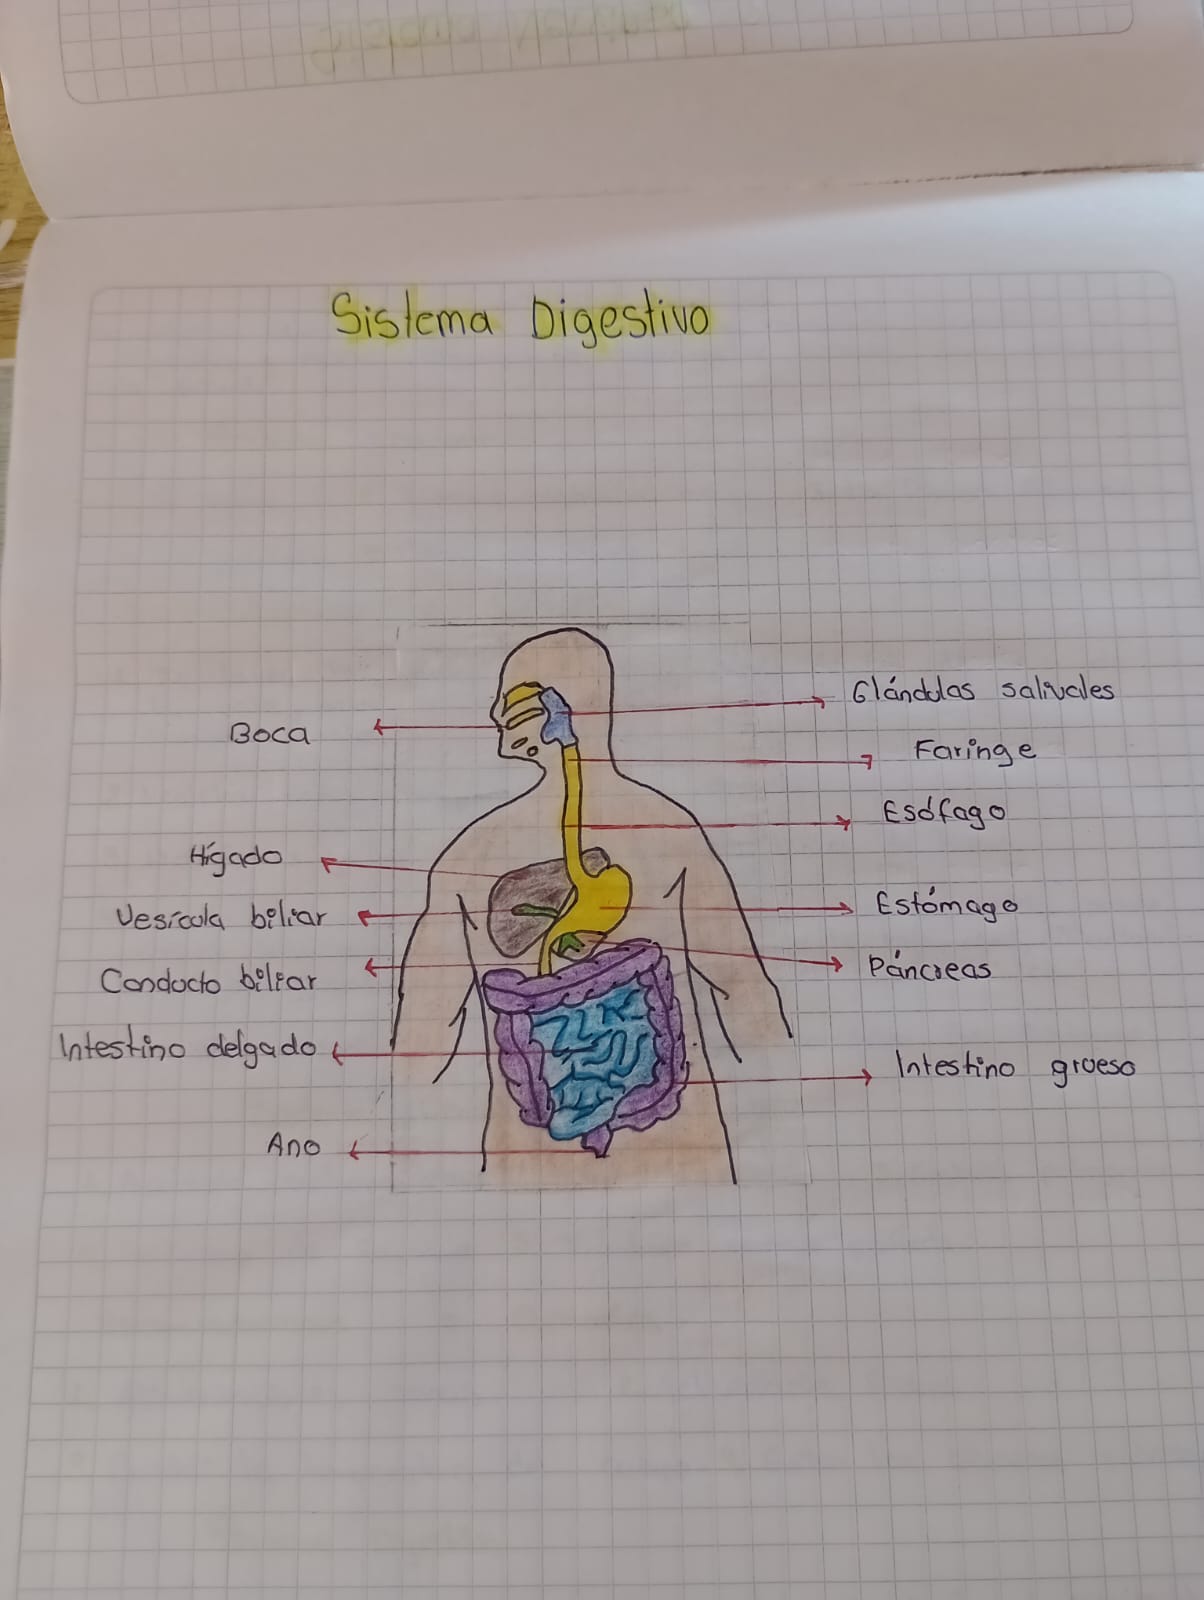 Sistema Digestivo
Glándulas salivales
Boca
Faringe
Esófago
Hígado
Vesícula biliar
Estómago
Conducto biliar
Páncreas
Intestino delgado
Intestino grueso
Ano